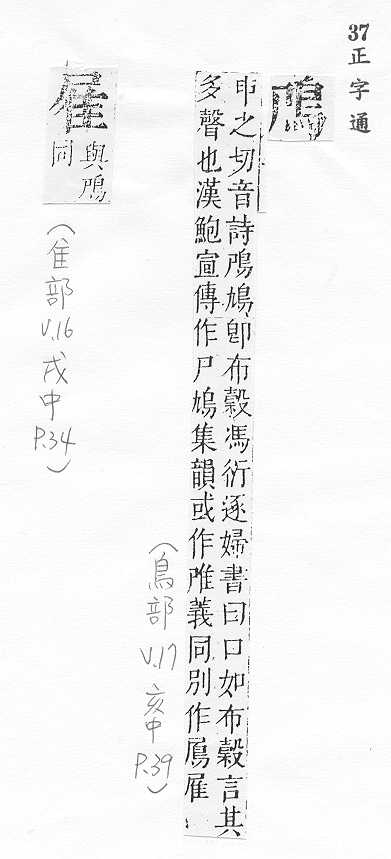 37正字通
鳲
申之切音詩鳲鳩卽布穀馮衍逐婦書曰口如布穀言其
多聲也漢鮑宣傳作尸鳩集韻或作義同別作
(鳥部 V.17 亥中 P.39)
與鳲
同
(隹部 V.16 戌中 P.34)